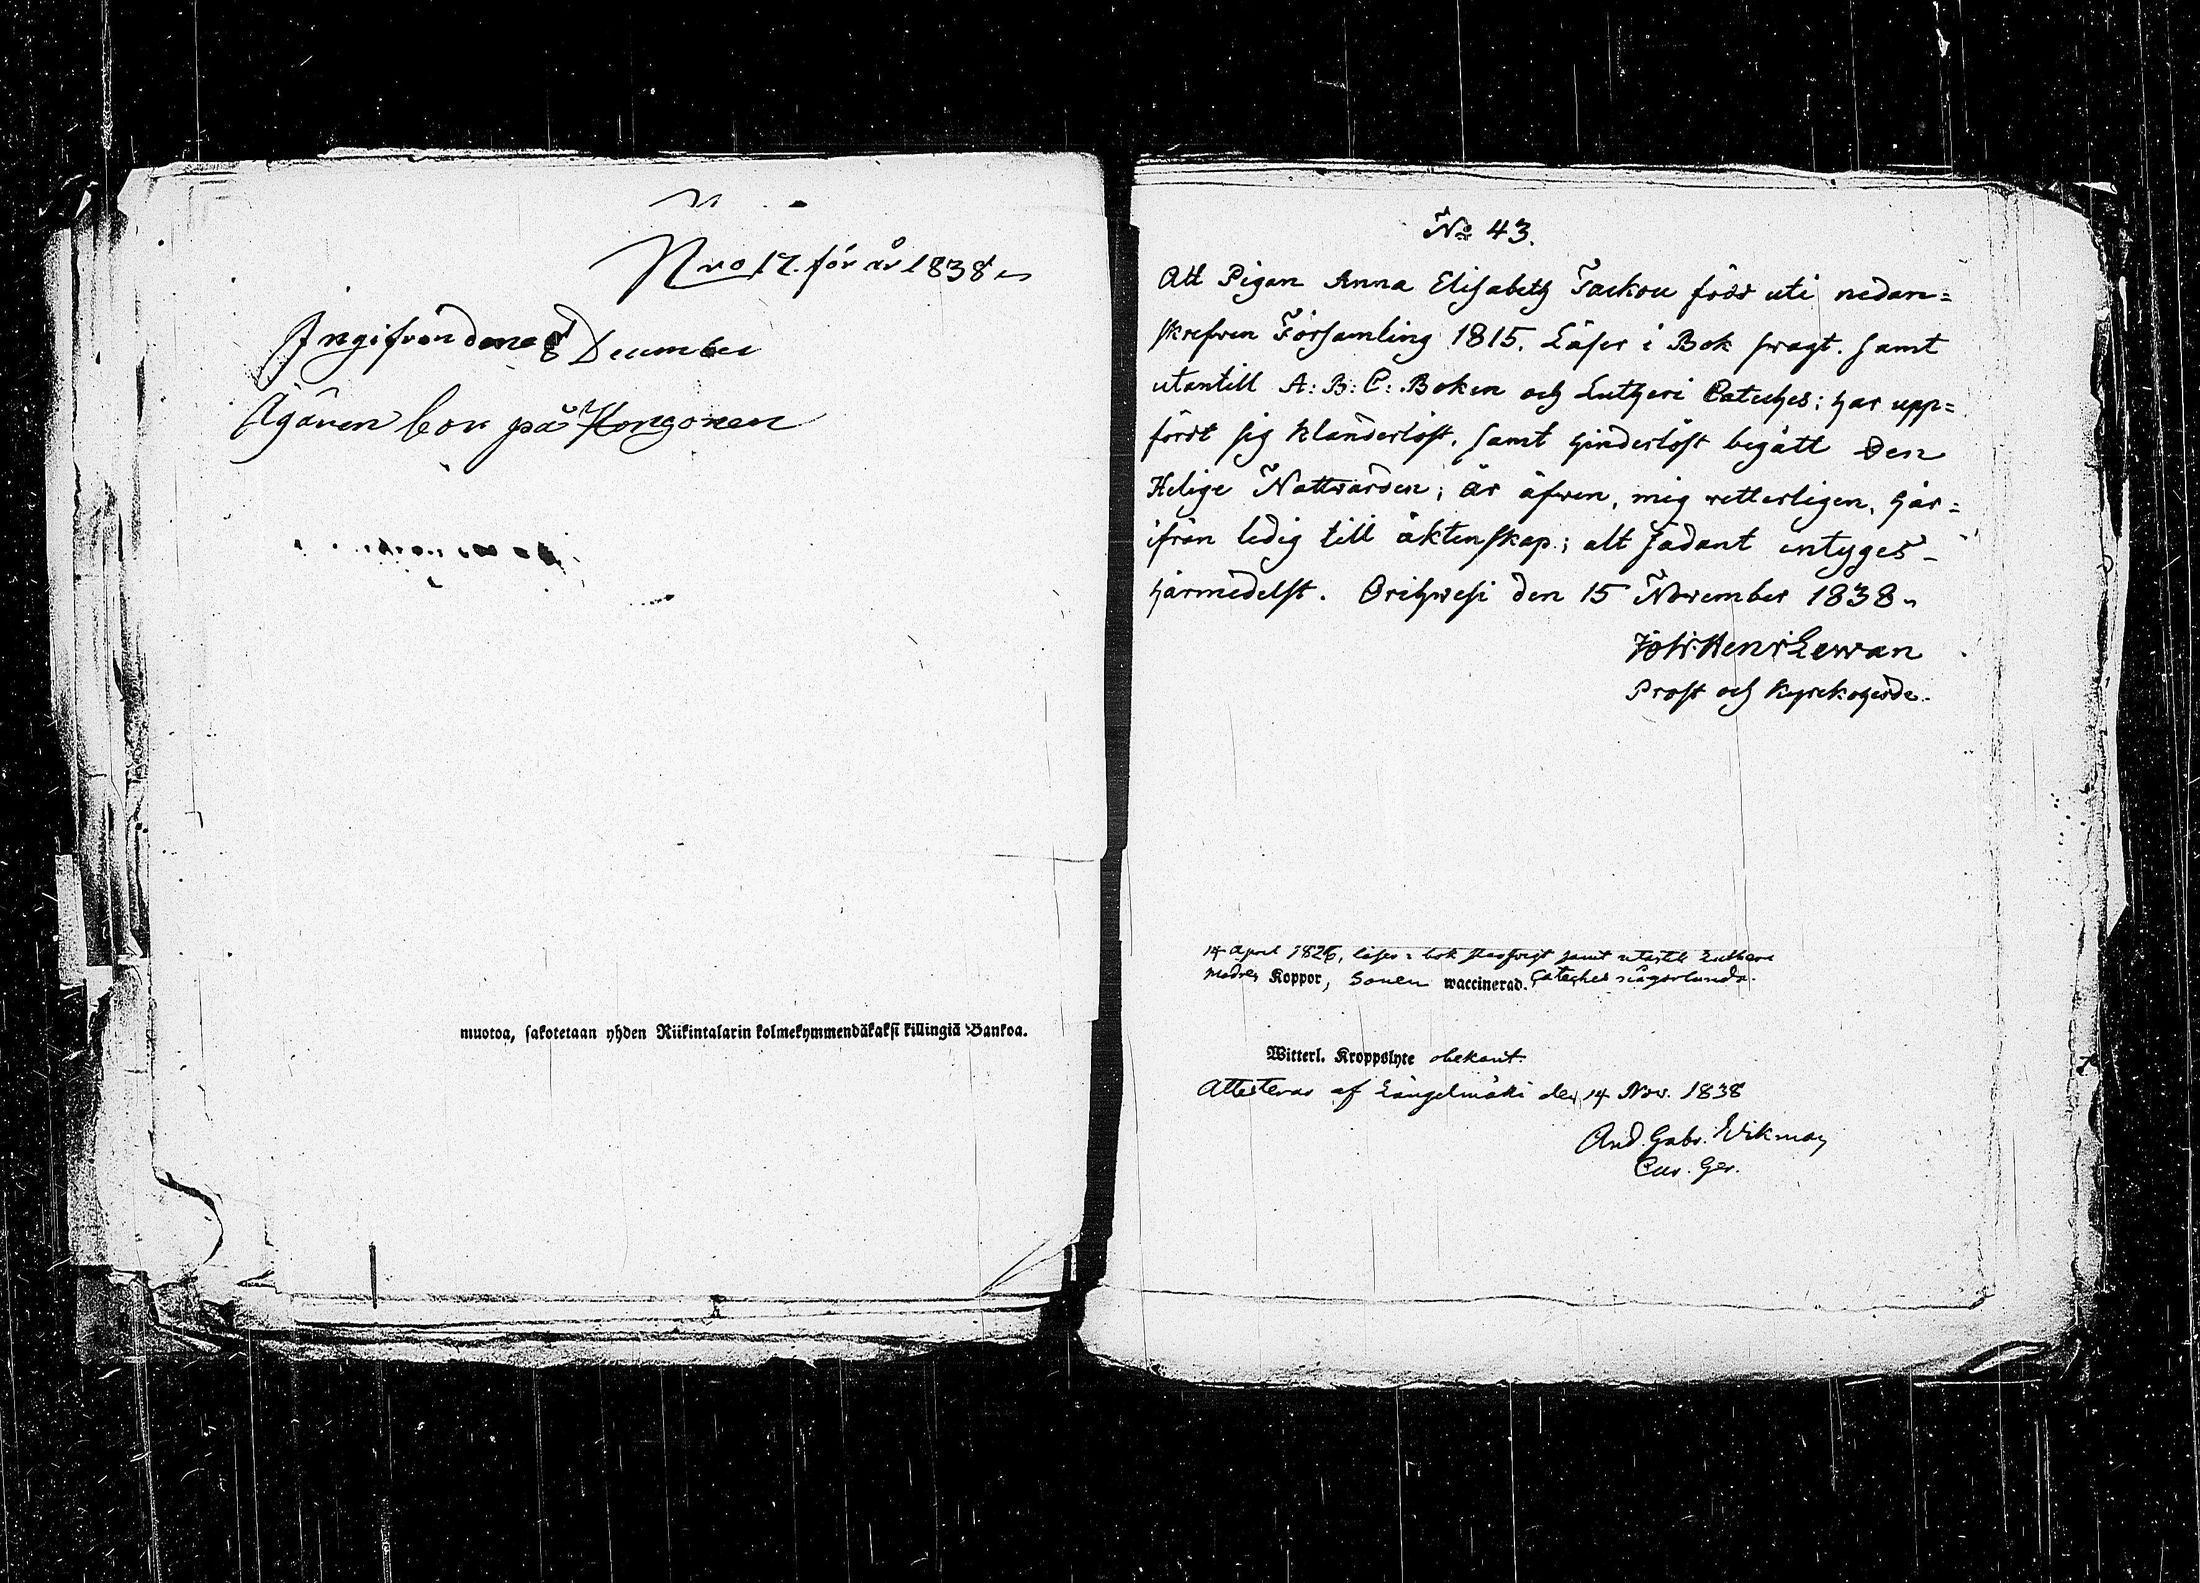 Nro 17. för år 1838
Ingifven den 8 December
Ägaren bor på Hongonen
muotoa, sakotetaan yhden Riikintalarin kolmekymmendäkaksi killingiä Bankoa.
No 43.
Att Pigan Anna Elisabeth Tackou född uti nedan=
skrefven Församling 1815. Läser i Bok svagt. samt
utantill A: B: C: Boken och Lutheri Cateches; har upp=
fördt sig klanderlöst, samt hinderlöst begått Den
Helige Nattvarden; är äfven, mig vetterligen, här=
ifrån ledig till äktenskap; alt sådant intyges
härmedelst. Orihvesi den 15 November 1838
Joh: Henr Lewan
Prost och Kyrkoherde.
14 April 1826, läser i bok samt utantill Lutheri
modren Koppor, Sonen waccinerad. Cateches någorlunda.
Witterl. Kroppslyte obekant.
Attesteras af Längelmäki den 14 Nov. 1838
And. Gabr. Wikman